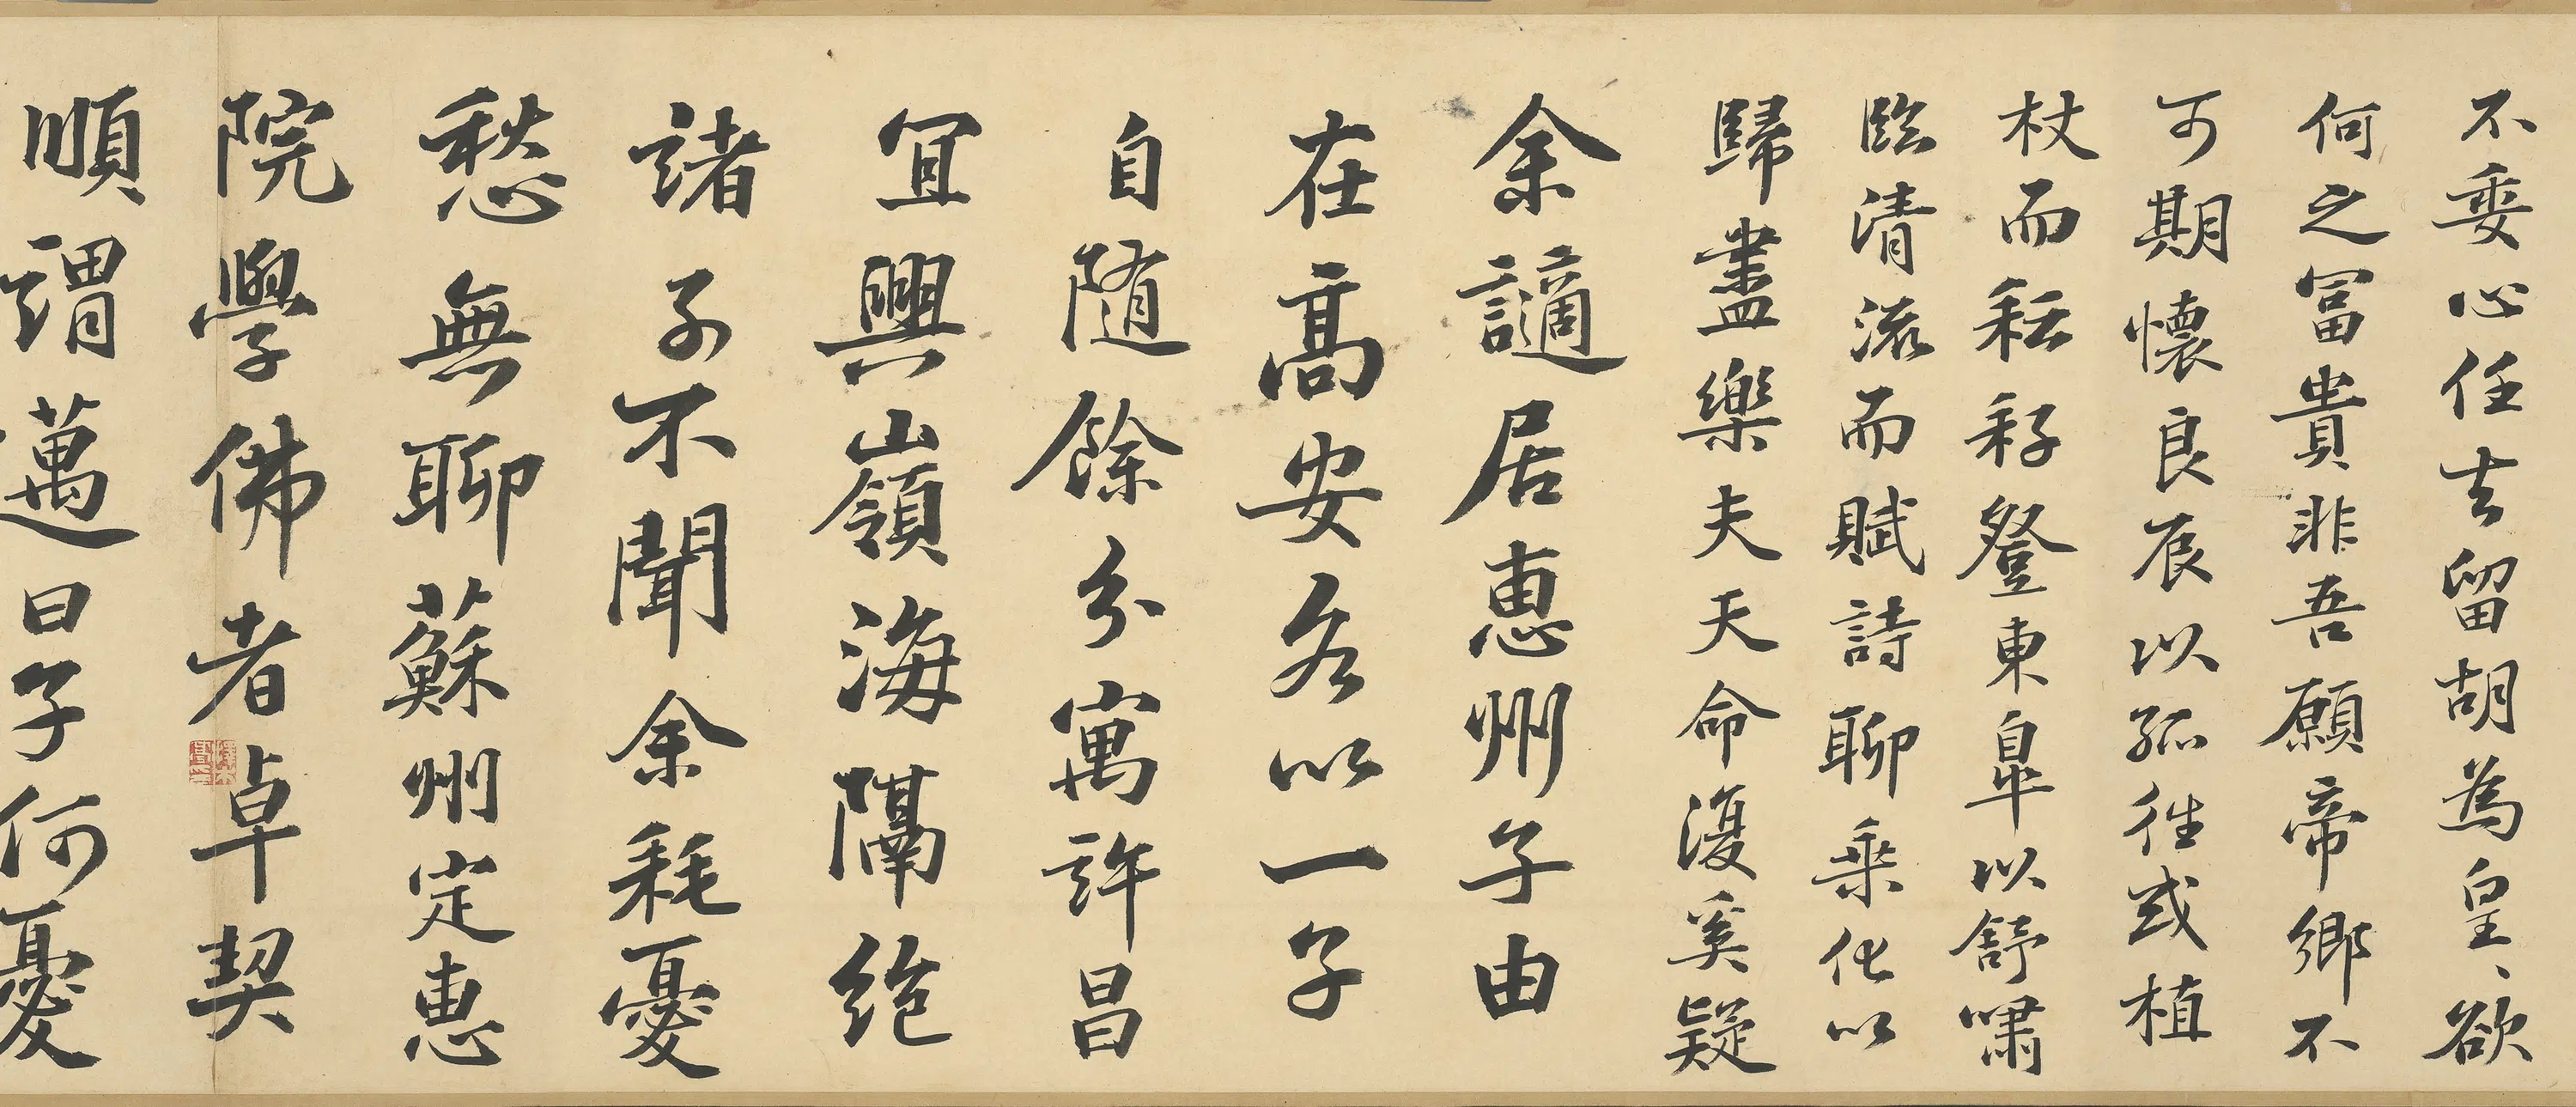 不委心任去留胡為皇〻欲
何之富貴非吾願帝鄉不
可期懷良辰以孤往或植
杖而耘耔登東皐以舒嘯
臨清流而賦詩聊乘化以
歸盡樂夫天命復奚疑
余謫居惠州子由
在高安各以一子
自隨餘分寓許昌
冝興嶺海隔絶
諸子不聞余耗憂
愁無聊蘇州定惠
院學佛者卓契
順謂邁曰子何憂